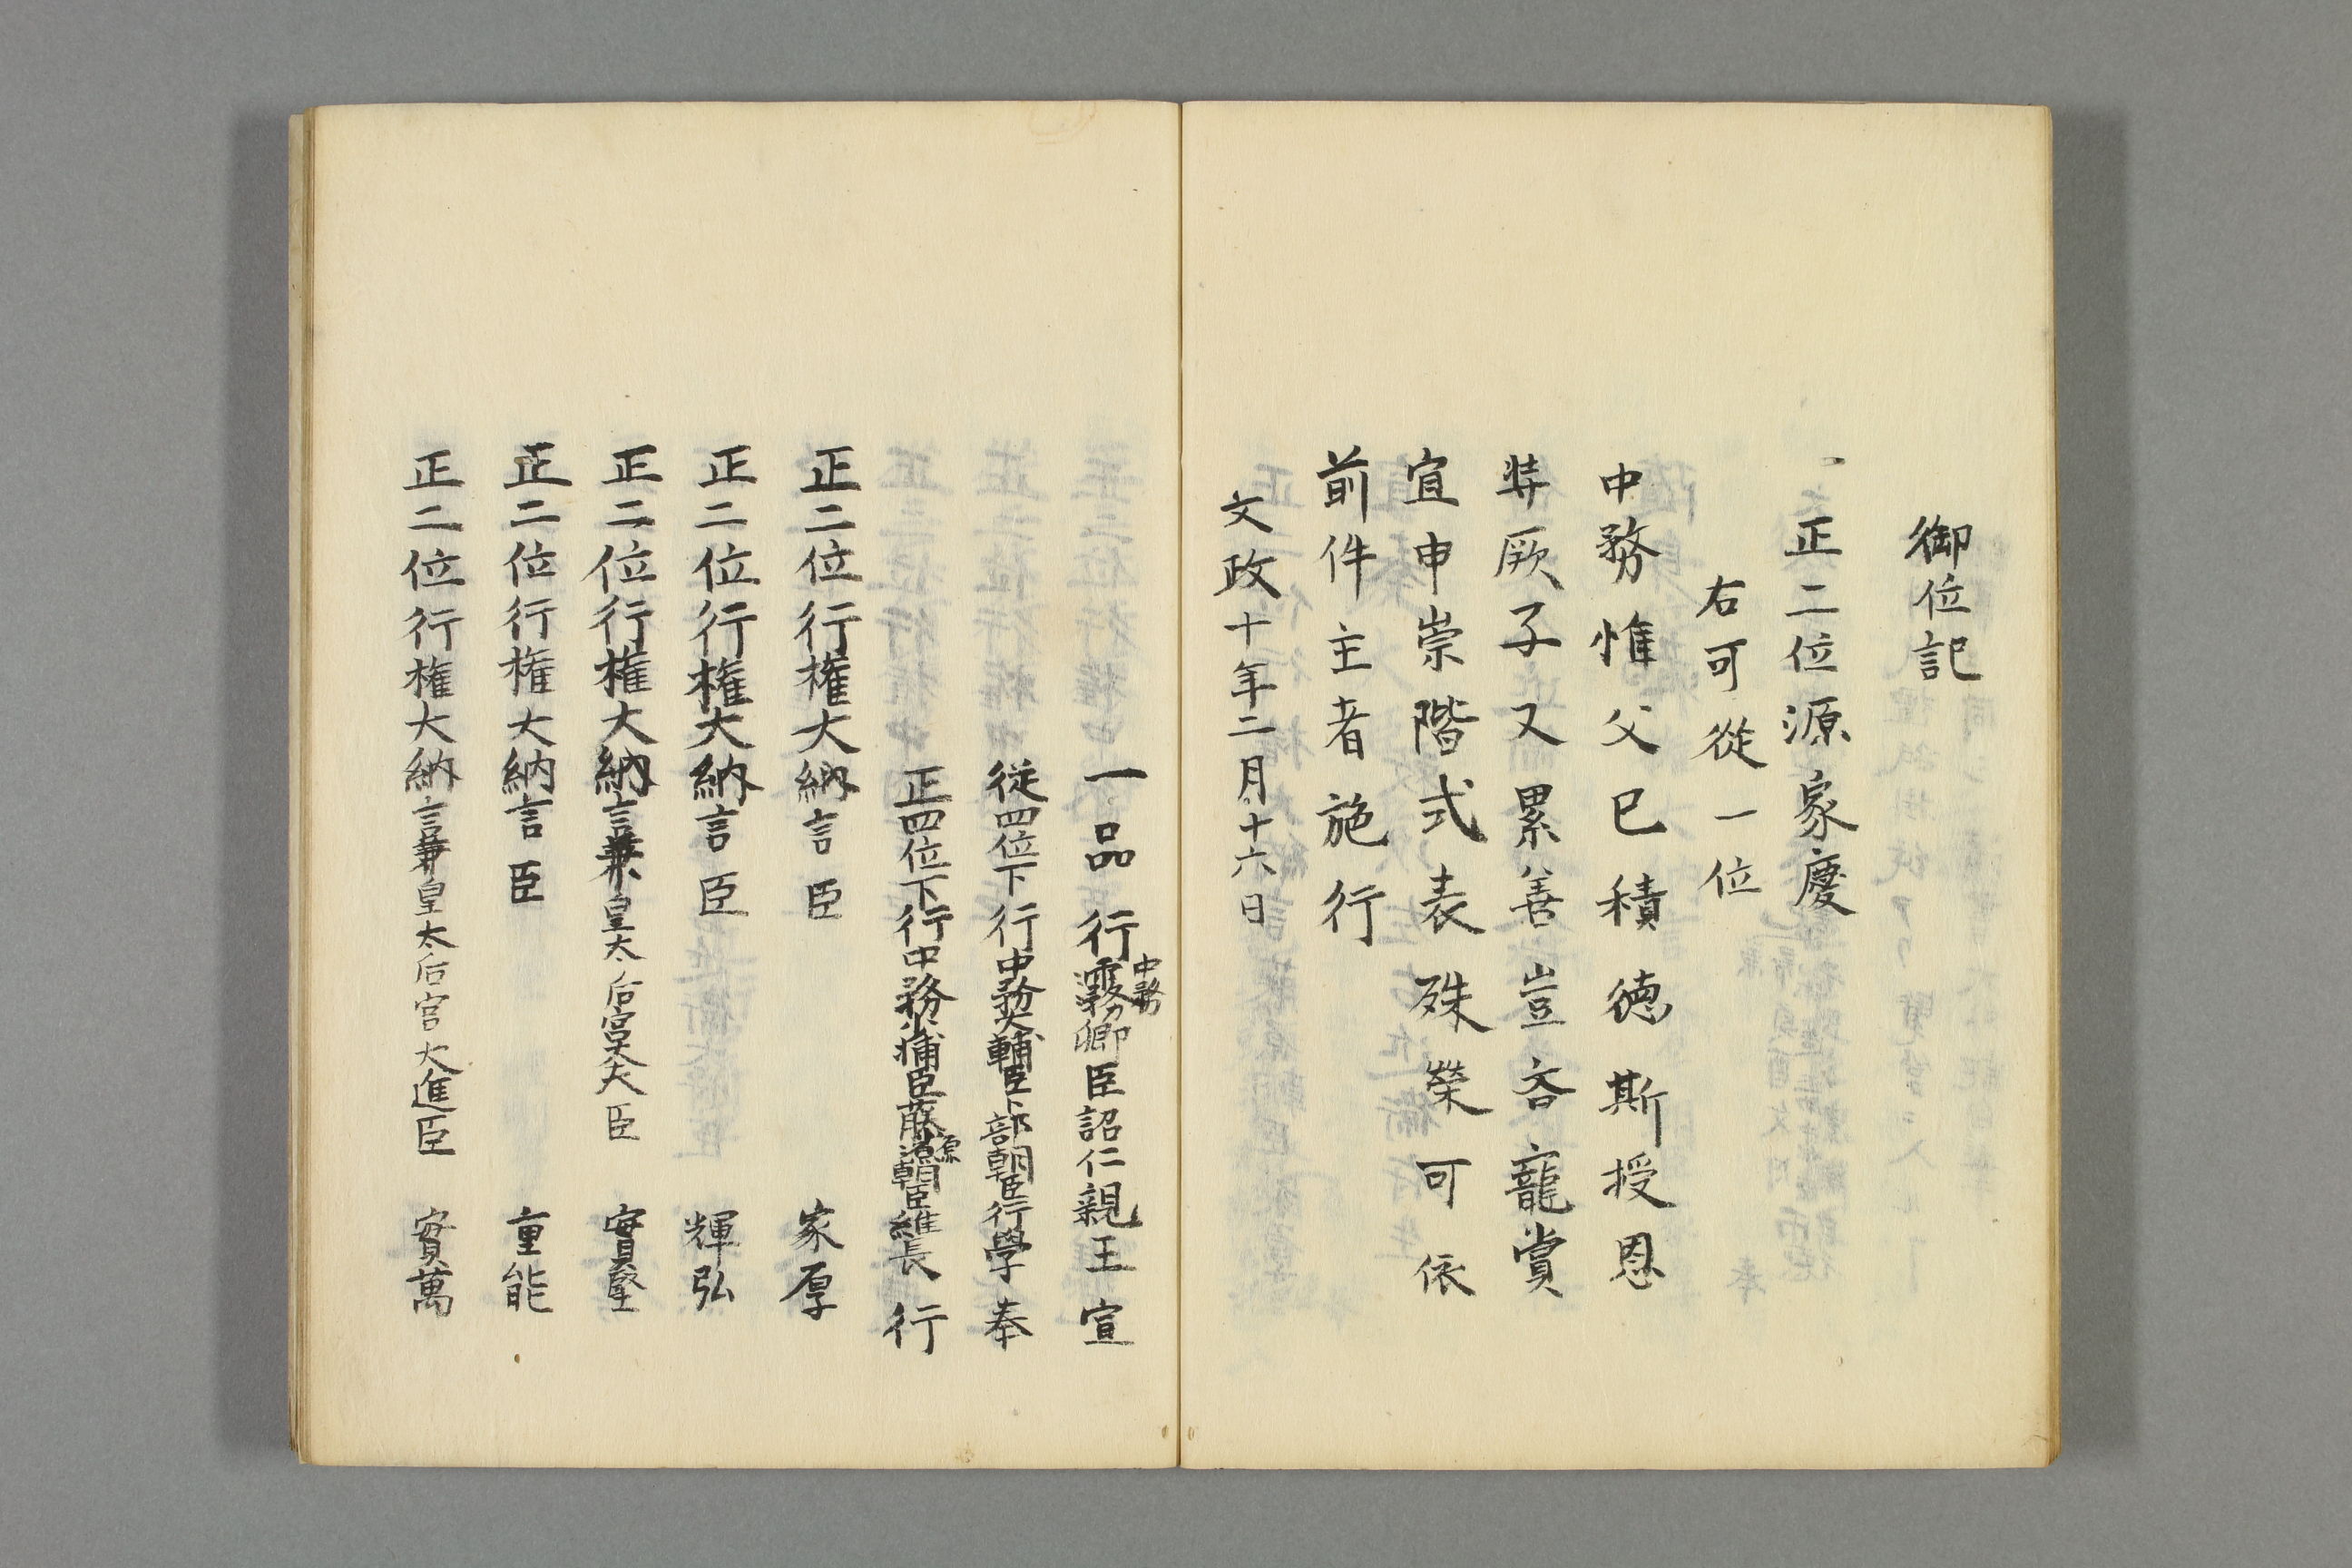 御位記
正二位源家慶
右可從一位
中務惟父已積德斯授恩
弉厥子又累善豈吝寵賞
宜申崇階式表殊榮可依
前件主者施行
文政十年二月十六日
一品行中務卿臣韶仁親王宣
從四位下行中務大輔臣卜部朝臣行學奉
正四位下行中務少輔臣藤原朝臣維長行
正二位行権大納言臣 家厚
正二位行権大納言臣 輝弘
正二位行権大納言兼皇太后宮大夫臣 實堅
正二位行権大納言臣 重能
正二位行権大納言兼皇太后宮大進臣 實萬